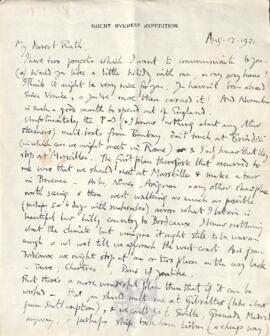 MOUNT EVEREST EXPEDITION.
Aug. 12. 1921
My dearest Ruth
I have two projects which I want to communicate to you.
(a) Would you like a little holiday with me on my way home?
I think it might be very nice for you. You haven't been abroad
since Venice, & you've more than earned it! And November
is such a good month to spend out of England.
Unfortunately the P & O (I know nothing about any other
steamers) mail boats from Bombay don't touch at Brindisi
(in which case we might meet in Rome) & I only know that they
stop at Marseilles. The first plan therefore that occurred to
me was that we should meet at Marseilles & make a tour
in Provence - Arles, Nimes, Avignon & any other places
worth seeing & then went walking as much as possible
(perhaps 5 or 6 days with rucksacks) across what I believe is
beautiful hilly country to Bordeaux. I know nothing
about the climate but imagine it might still be warm
enough & not wet till we approach the west coast. And from
Bordeaux we might stop at one or two places on the way back
- Tours, Chartres Paris if you like.
But there's a more wonderful plan than that if it can be
worked - that you should meet me at Gibraltar (take a boat
from Southampton), & we could go to Seville, Granada, Madrid
anyway, & perhaps ship back from Lisbon (a cheap way